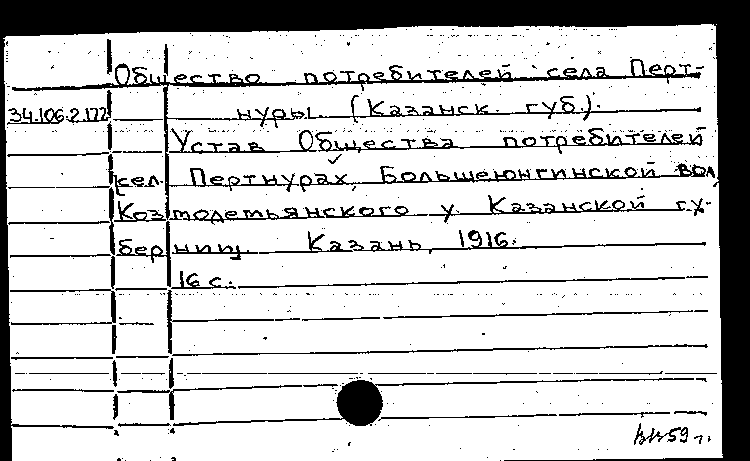 Общество потребителей села Перт-
34.106.2.172 нуры (Казанск. губ.).
Устав Общества потребителей
сел. Пертнурах, Большеюнгинской вол.
Козмодемьянского у. Казанской гу-
бернии. Казань, 1916.
16 с.
59 г.